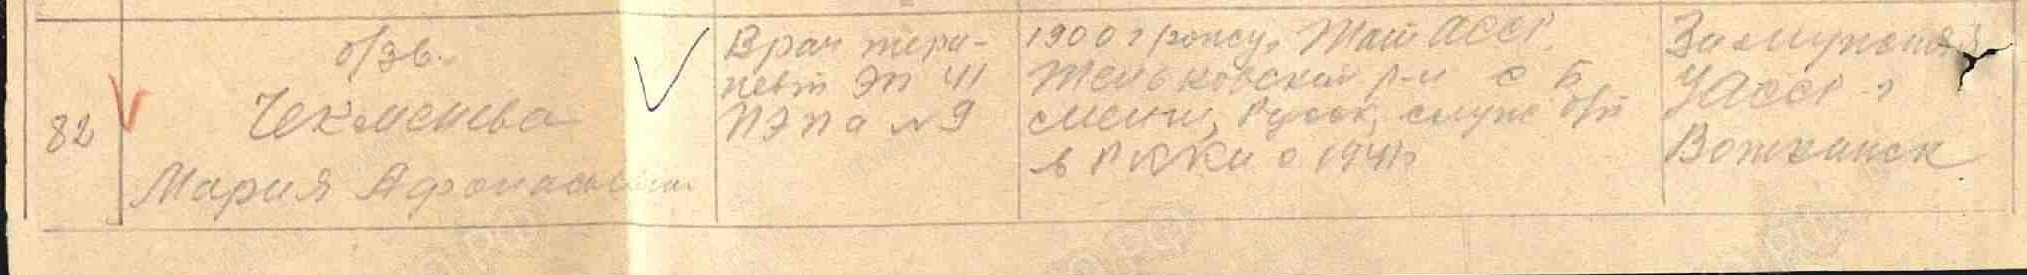 82
б/зв.
Чекменева
Мария Афонасьевна
Врач тера-
певт ЭП 41
ПЭПа №9
1900 г рожд, Тат АССР.
р-н с Б
служ б/п
в РККА с 1941г
За мужем
УАССР г
Воткинск